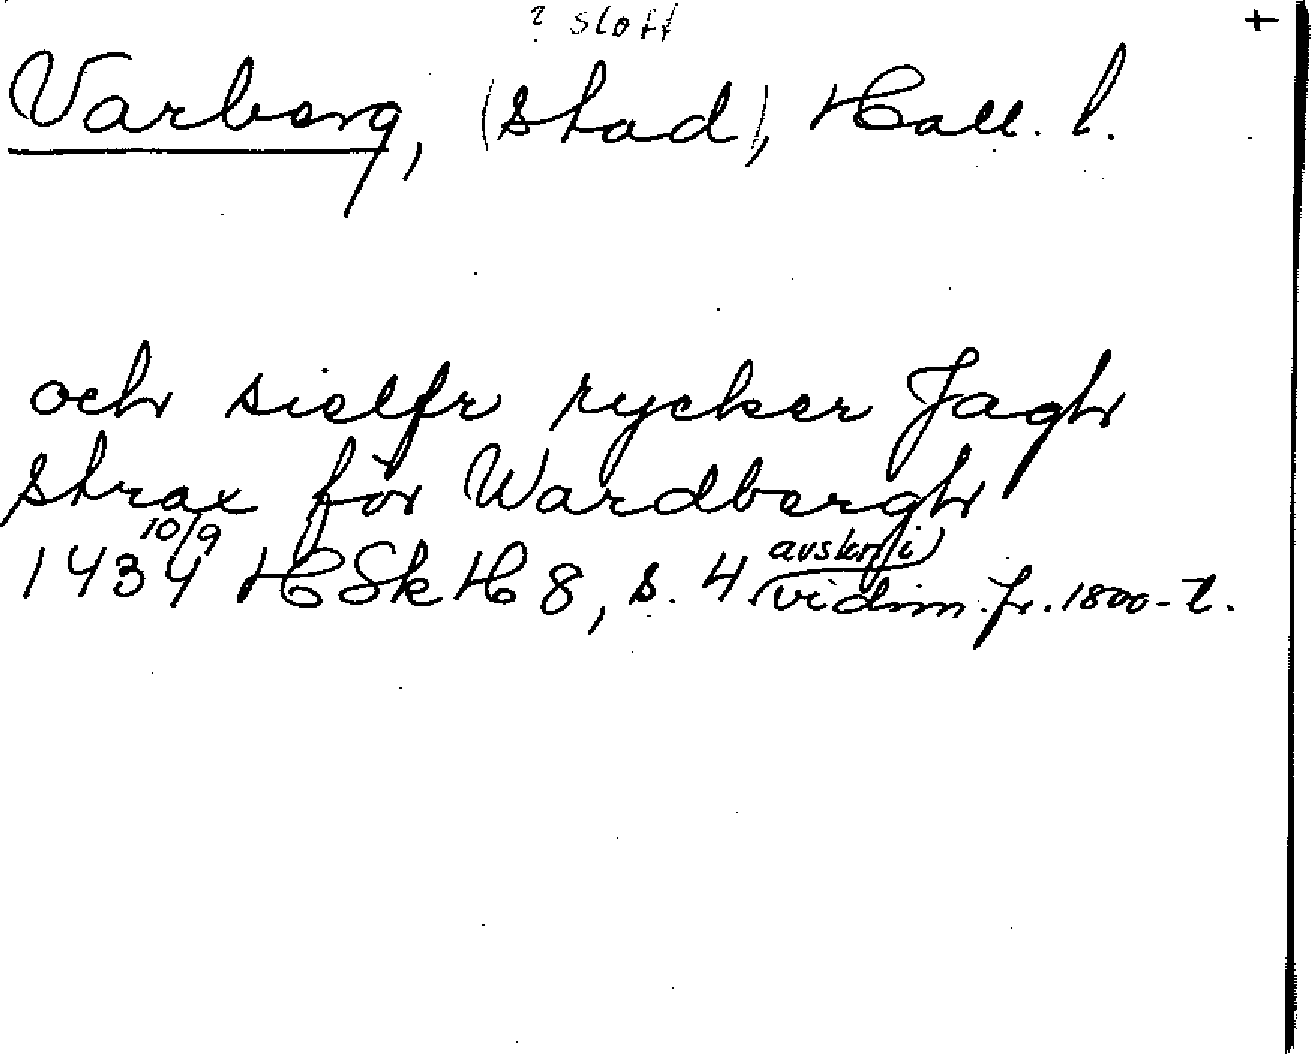 ? slott +
Varberg, (stad), Hall. l.
och sielfr rycker Jagh
strax för Wardbergh
10/9 avskr. i
1434 HSkH 8, s. 4 vidim. fr. 1800-t.